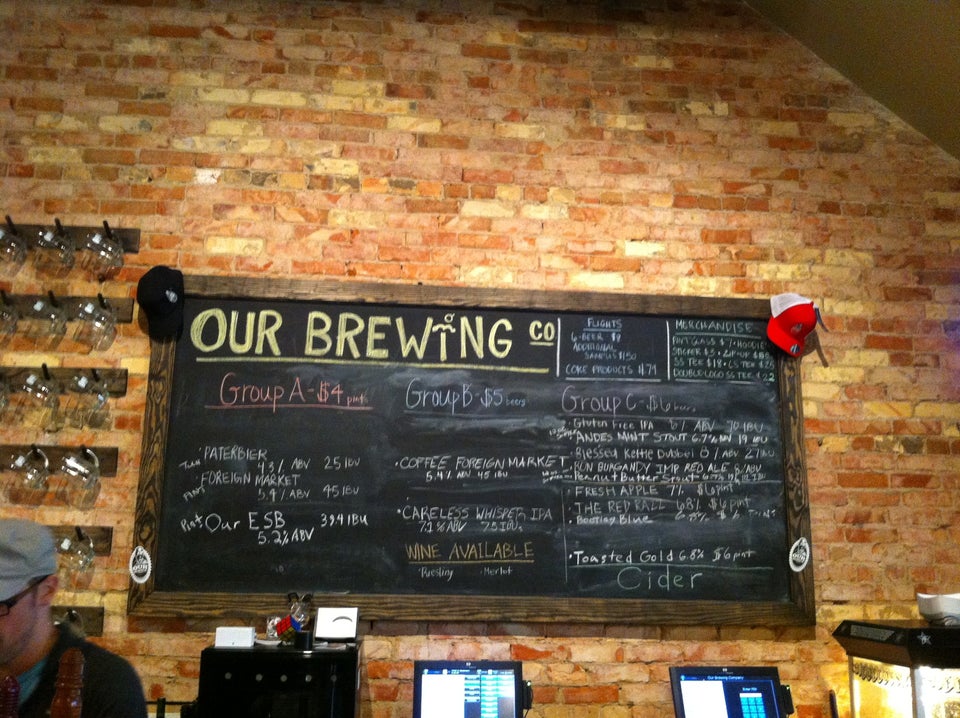 OUR BREWING CO
FLIGHTS
6-BEER $8
ADDITIONAL
SAMPLES $1.50
CORE PRODUCTS
MERCHANDISE
PINT GLASS $7 • HOODIE
STICKER $3 • ZIP-UP
SS TEE $18 • LS TEE
DOUBLE LOGO SS TEE
Group A - $4 pints
PATERBIER
4.3% ABV 25 IBU
FOREIGN MARKET
5.4% ABV 45 IBU
Our ESB 39.4 IBU
5.2% ABV
Group B - $5 beers
• COFFEE FOREIGN MARKET
5.4% ABV 45 IBU
• CARELESS WHISPER IPA
7.1% ABV 75 IBUs
WINE AVAILABLE
• Riesling • Merlot
Group C - $6 beers
• Gluten Free IPA 6% ABV 70 IBU
• ANDES MINT STOUT 6.7% ABV 19 IBU
• Blessed Kettle Dubbel 8% ABV 27 IBU
• RON BURGANDY IMP RED ALE 8% ABV
• Peanut Butter Stout
• FRESH APPLE 7% $6 pint
• THE RED RALL 6.8% $6 pint
• Bootlay Blue
• Toasted Gold 6.8% $6 pint
Cider
Our Brewing Company